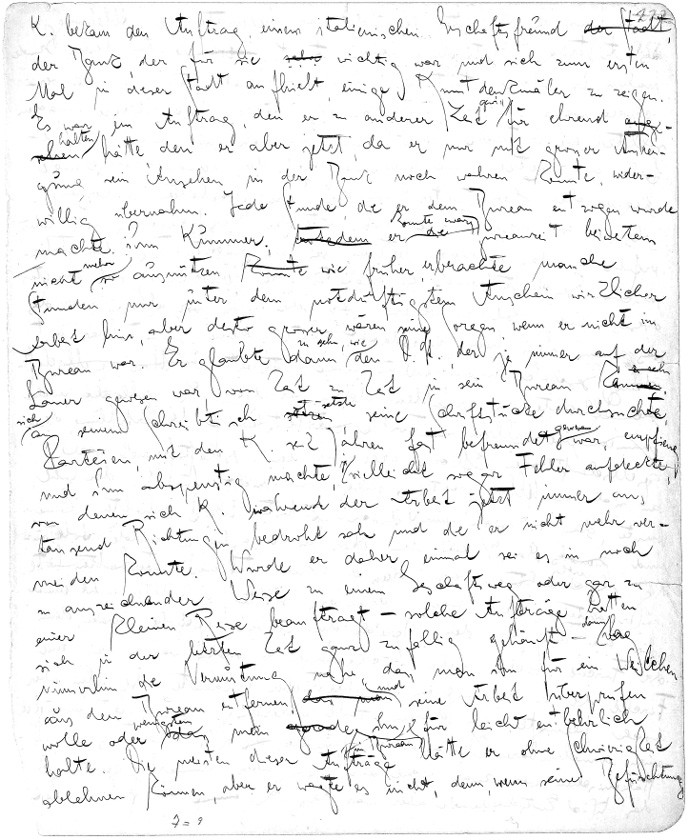 K. bekam den Auftrag, einem italienischen Geschäftsfreund der Stadt,
der Bank, der für sie sehr wichtig war und sich zum ersten
Mal in dieser Stadt aufhielt, einige Kunstdenkmäler zu zeigen.
Es war ein Auftrag, den er zu anderer Zeit gewiß für ehrend ge-
halten hätte, den er aber jetzt, da er nur mit grosser Anstren-
gung sein Ansehen in der Bank noch wahren konnte, wider-
willig übernahm. Jede Stunde, die er dem Bureau entzogen wurde
machte ihm Kummer; er konnte zwar die Bureauzeit bei weitem
nicht mehr so ausnützen konnte wie früher er brachte manche
Stunden nur unter dem notdürftigsten Anschein wirklicher
Arbeit hin, aber desto grösser waren seine Sorgen wenn er nicht im
Bureau war. Er glaubte dann zu sehn, wie der D. St. der ja immer auf der
Lauer gewesen war, von Zeit zu Zeit in sein Bureau
sich an seinen Schreibtisch setzte, seine Schriftstücke durchsuchte,
Parteien, mit denen K. seit Jahren fast befreundet gewesen war, empfieng
und ihm abspenstig machte, vielleicht sogar Fehler aufdeckte,
von denen sich K. während der Arbeit jetzt immer aus
tausend Richtungen bedroht sah und die er nicht mehr ver-
meiden konnte. Wurde er daher einmal sei es in noch
so auszeichnender Weise zu einem Geschäftsweg oder gar zu
einer kleinen Reise beauftragt – solche Aufträge hatten
sich in der letzten Zeit ganz zufällig gehäuft – dann lag
immerhin die Vermutung nahe, dass man ihn für ein Weilchen
aus dem Bureau entfernen dass man und seine Arbeit überprüfen
wolle oder wenigstens dass man gerade ihn für leicht entbehrlich
halte. Die meisten dieser Aufträge hätte er ohne Schwierigkeit
ablehnen können, aber er wagte es nicht, denn, wenn seine Befürchtung